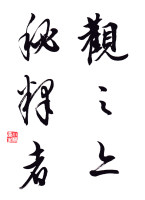 觀之上
秘釋者